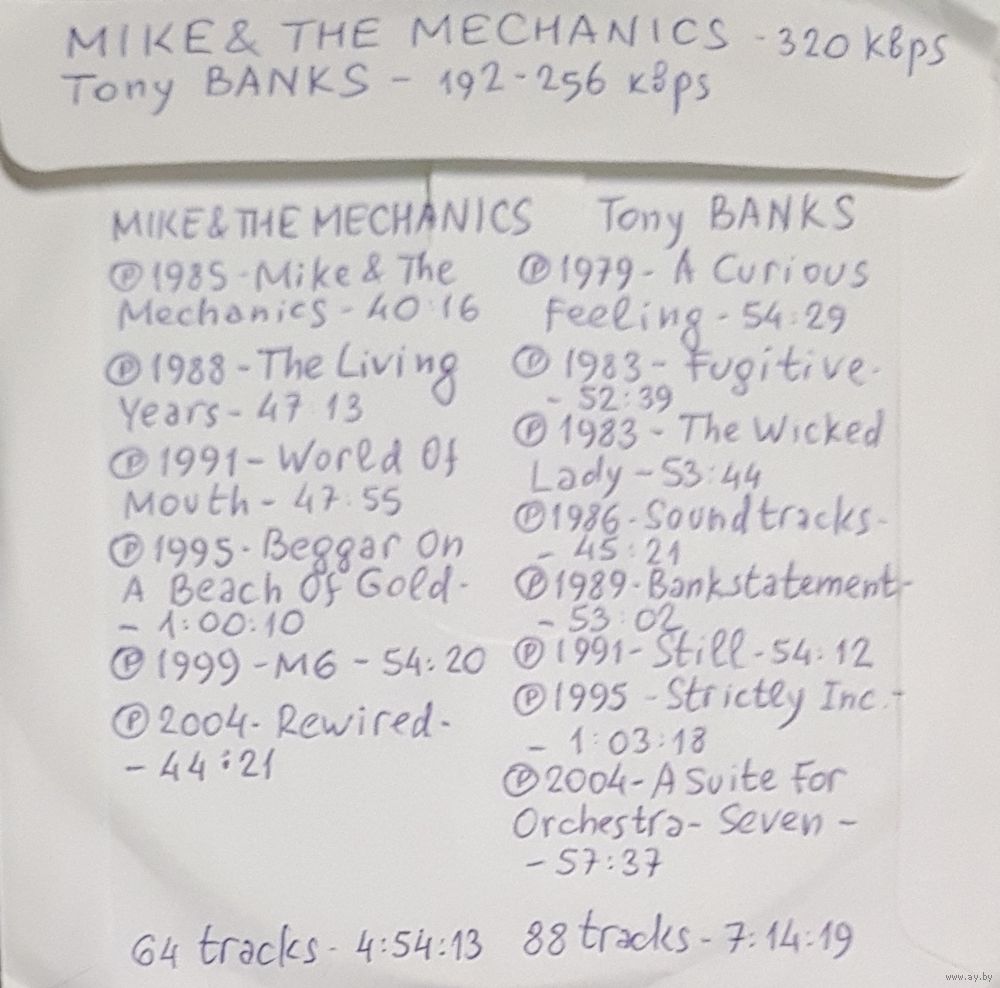 MIKE & THE MECHANICS - 320 kBps
Tony BANKS - 192-256 kBps
MIKE & THE MECHANICS
Ⓟ 1985 - Mike & The
Mechanics - 40:16
Ⓟ 1988 - The Living
Years - 47:13
Ⓟ 1991 - World Of
Mouth - 47:55
Ⓟ 1995 - Beggar On
A Beach Of Gold -
- 1:00:10
Ⓟ 1999 - M6 - 54:20
Ⓟ 2004 - Rewired -
- 44:21
64 tracks - 4:54:13
Tony BANKS
Ⓟ 1979 - A Curious
Feeling - 54:29
Ⓟ 1983 - Fugitive -
- 52:39
Ⓟ 1983 - The Wicked
Lady - 53:44
Ⓟ 1986 - Soundtracks -
- 45:21
Ⓟ 1989 - Bankstatement -
- 53:02
Ⓟ 1991 - Still - 54:12
Ⓟ 1995 - Strictly Inc. -
- 1:03:18
Ⓟ 2004 - A Suite For
Orchestra - Seven -
- 57:37
88 tracks - 7:14:19
www.ay.by